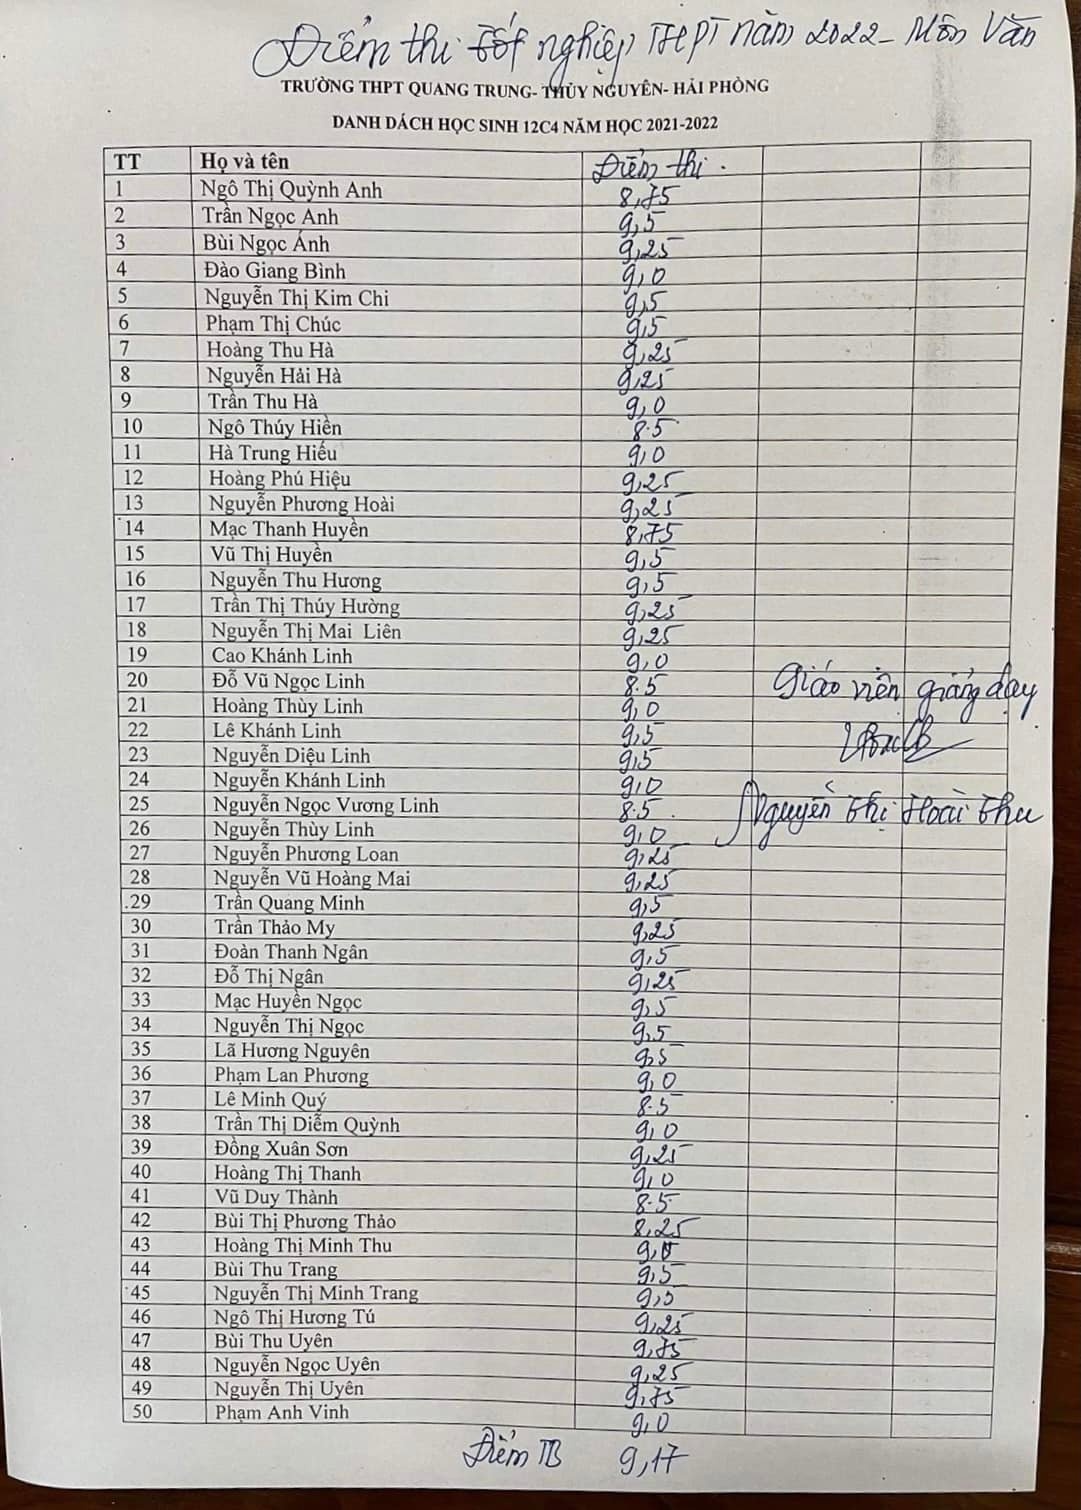 Điểm thi tốt nghiệp THPT năm 2022 - Môn Văn
TRƯỜNG THPT QUANG TRUNG- THỦY NGUYÊN- HẢI PHÒNG
DANH DÁCH HỌC SINH 12C4 NĂM HỌC 2021-2022
TT Họ và tên Điểm thi
1 Ngô Thị Quỳnh Anh 8,75
2 Trần Ngọc Anh 9,5
3 Bùi Ngọc Ánh 9,25
4 Đào Giang Bình 9,0
5 Nguyễn Thị Kim Chi 9,5
6 Phạm Thị Chúc 9,5
7 Hoàng Thu Hà 9,25
8 Nguyễn Hải Hà 9,25
9 Trần Thu Hà 9,0
10 Ngô Thúy Hiền 8.5
11 Hà Trung Hiếu 9,0
12 Hoàng Phú Hiệu 9,25
13 Nguyễn Phương Hoài 9,25
14 Mạc Thanh Huyền 8,75
15 Vũ Thị Huyền 9,5
16 Nguyễn Thu Hương 9,5
17 Trần Thị Thúy Hường 9,25
18 Nguyễn Thị Mai Liên 9,25
19 Cao Khánh Linh 9,0
20 Đỗ Vũ Ngọc Linh 8.5 Giáo viên giảng dạy
21 Hoàng Thùy Linh 9,0
22 Lê Khánh Linh 9,5
23 Nguyễn Diệu Linh 9,5
24 Nguyễn Khánh Linh 9,0
25 Nguyễn Ngọc Vương Linh 8.5 Nguyễn Thị Hoài Thu
26 Nguyễn Thùy Linh 9,0
27 Nguyễn Phương Loan 9,25
28 Nguyễn Vũ Hoàng Mai 9,25
29 Trần Quang Minh 9,5
30 Trần Thảo My 9,25
31 Đoàn Thanh Ngân 9,5
32 Đỗ Thị Ngân 9,25
33 Mạc Huyền Ngọc 9,5
34 Nguyễn Thị Ngọc 9,5
35 Lã Hương Nguyên 9,5
36 Phạm Lan Phương 9,0
37 Lê Minh Quý 8.5
38 Trần Thị Diễm Quỳnh 9,0
39 Đồng Xuân Sơn 9,25
40 Hoàng Thị Thanh 9,0
41 Vũ Duy Thành 8.5
42 Bùi Thị Phương Thảo 8,25
43 Hoàng Thị Minh Thu 9,0
44 Bùi Thu Trang 9,5
45 Nguyễn Thị Minh Trang 9,5
46 Ngô Thị Hương Tú 9,25
47 Bùi Thu Uyên 9,75
48 Nguyễn Ngọc Uyên 9,25
49 Nguyễn Thị Uyên 9,75
50 Phạm Anh Vinh 9,0
Điểm TB 9,17